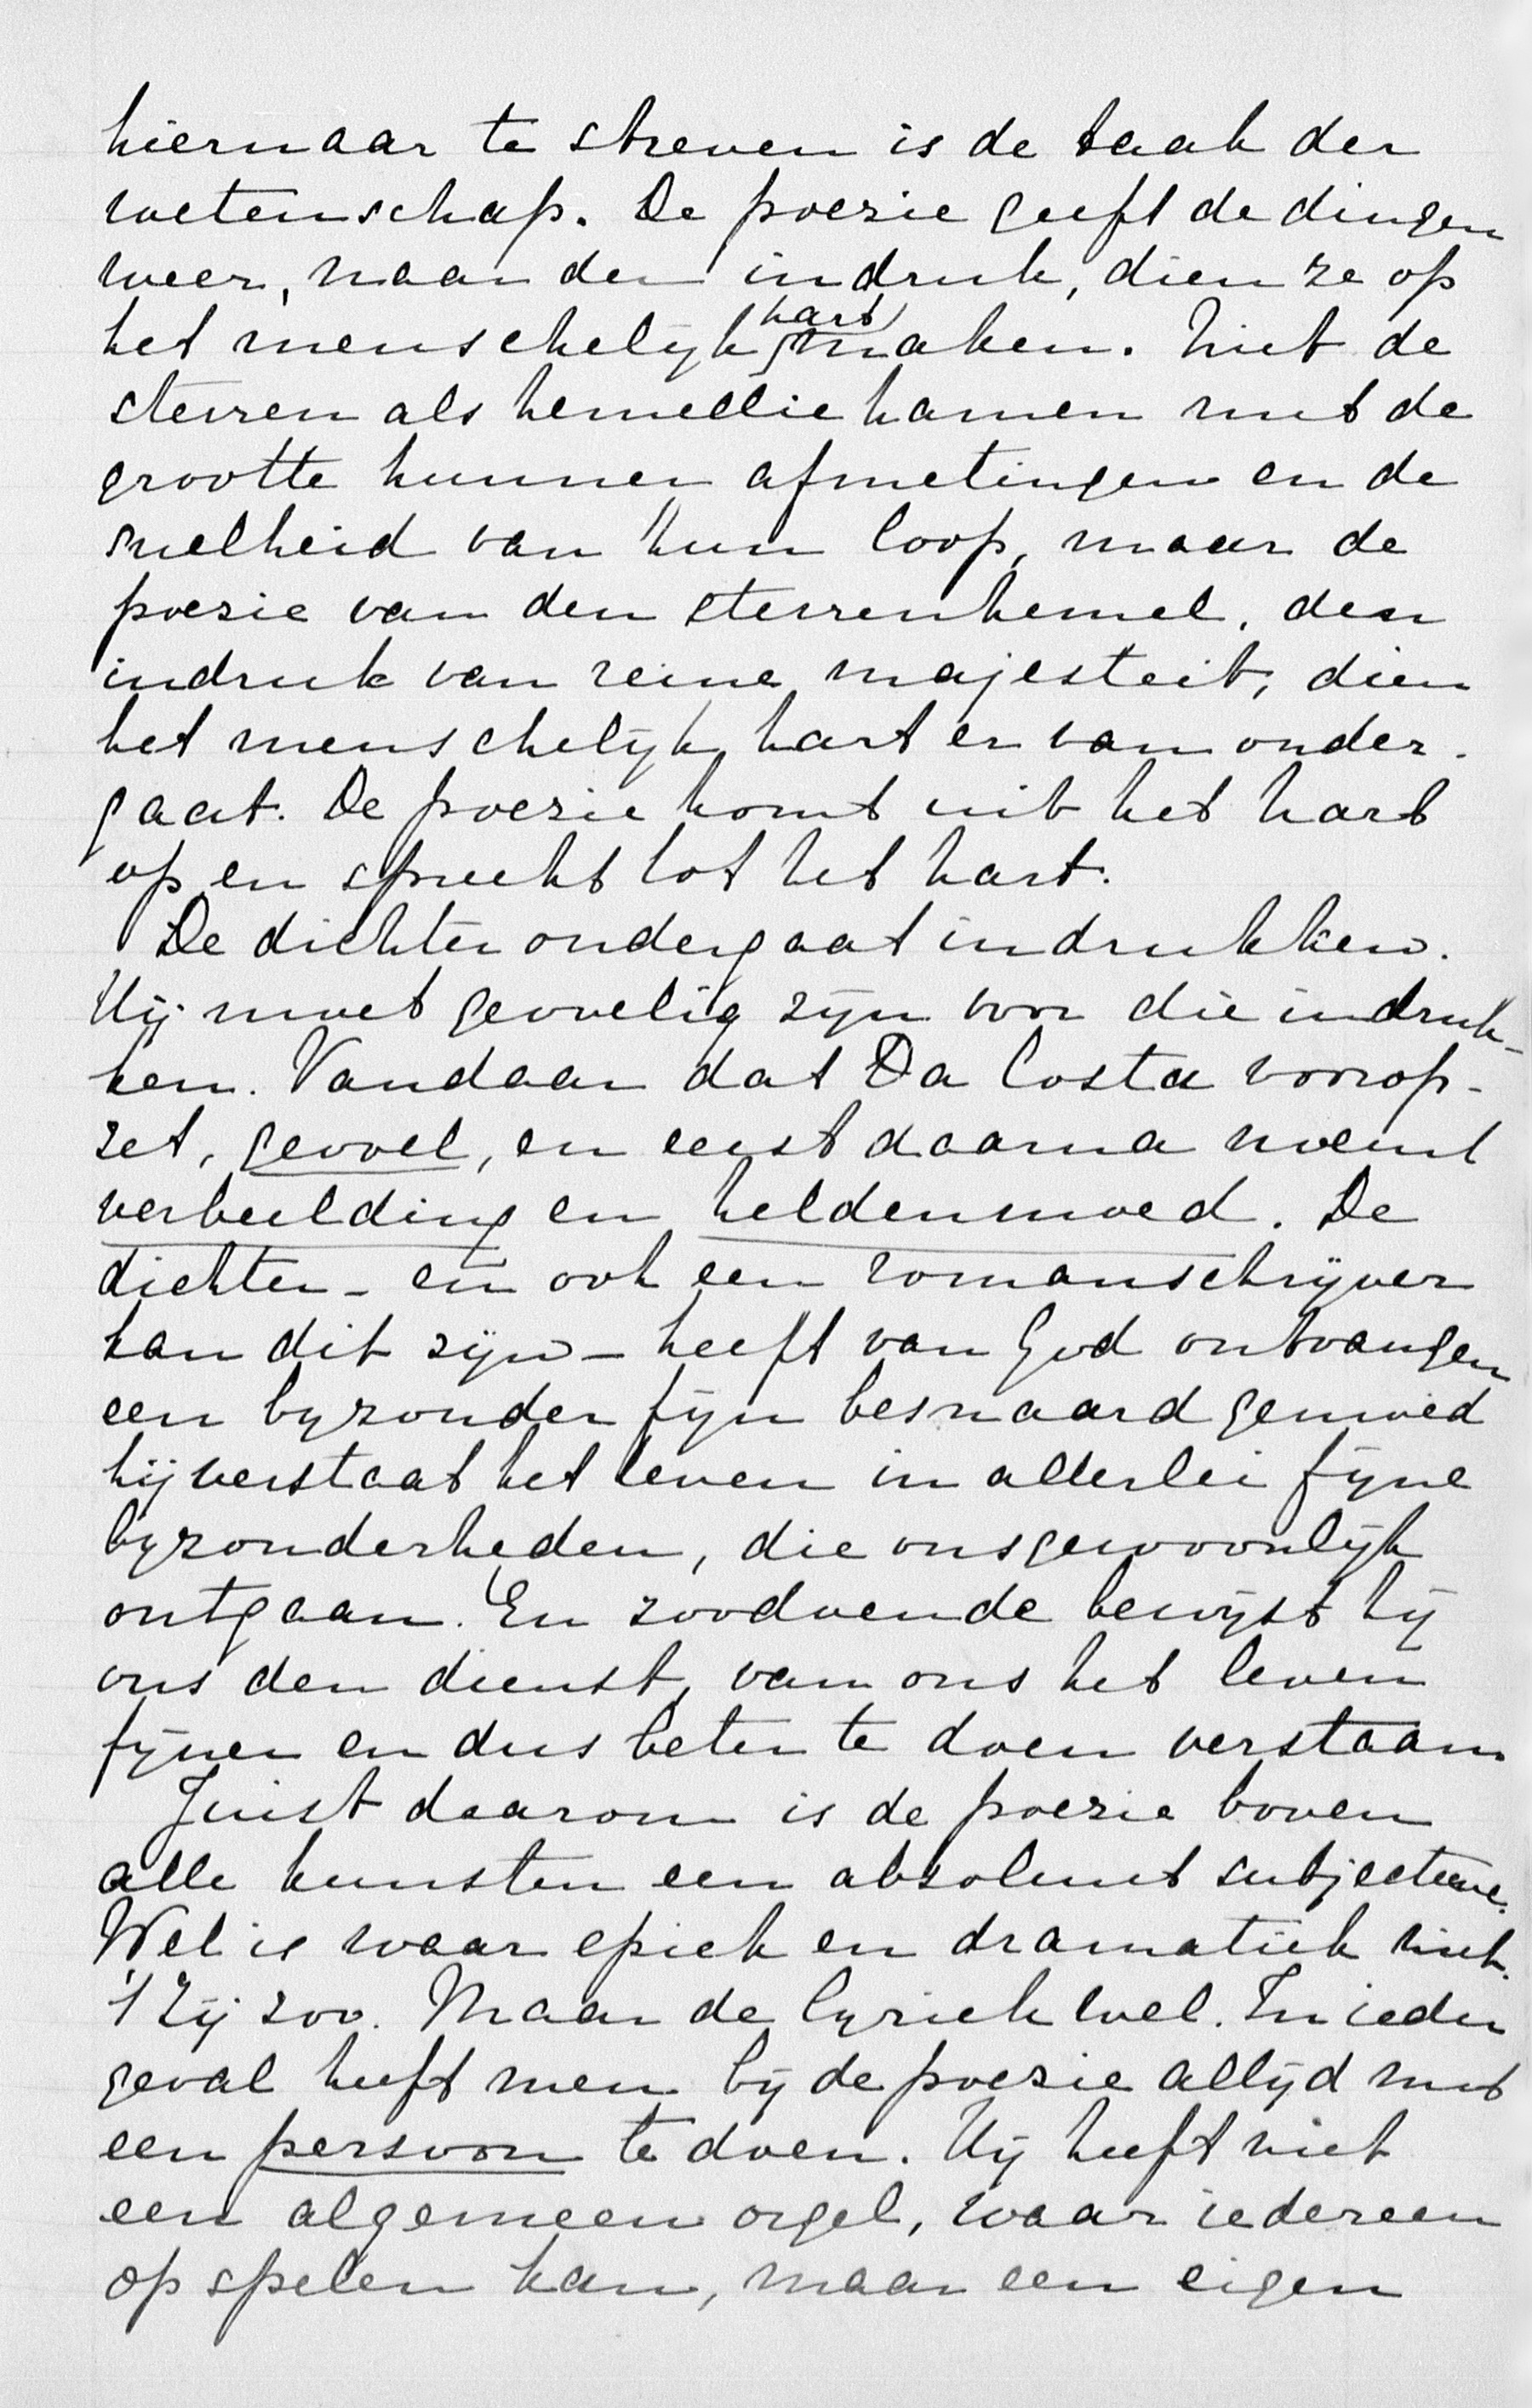 hiernaar te streven is de taak der
wetenschap. De poezie geeft de dingen
weer, naar den indruk, dien ze op
het menschelijk hart maken. Niet de
sterren als hemellichamen met de
grootte hunner afmetingen en de
snelheid van hun loop, maar de
poezie van den sterrenhemel, den
indruk van reine majesteit, dien
het menschelijk hart er van onder-
gaat. De poezie komt uit het hart
op en spreekt tot het hart.
De dichter ondergaat indrukken.
Hij moet gevoelig zijn voor die indruk-
ken. Vandaar dat Da Costa voorop-
zet, gevoel, en eerst daarna noemt
verbeelding en heldenmoed. De
dichter - en ook een romanschrijver
kan dit zijn - heeft van God ontvangen
een byzonder fijn besnaard gemoed
hij verstaat het leven in allerlei fijne
byzonderheden, die ons gewoonlijk
ontgaan. En zoodoende bewijst hij
ons den dienst, van ons het leven
fijner en dus beter te doen verstaan.
Juist daarom is de poezie boven
alle kunsten een absoluut subjectieve.
Wel is waar epiek en dramatiek niet.
't Zij zoo. Maar de lyriek wel. In ieder
geval heeft men bij de poezie altijd met
een persoon te doen. Hij heeft niet
een algemeen orgel, waar iedereen
op spelen kan, maar een eigen